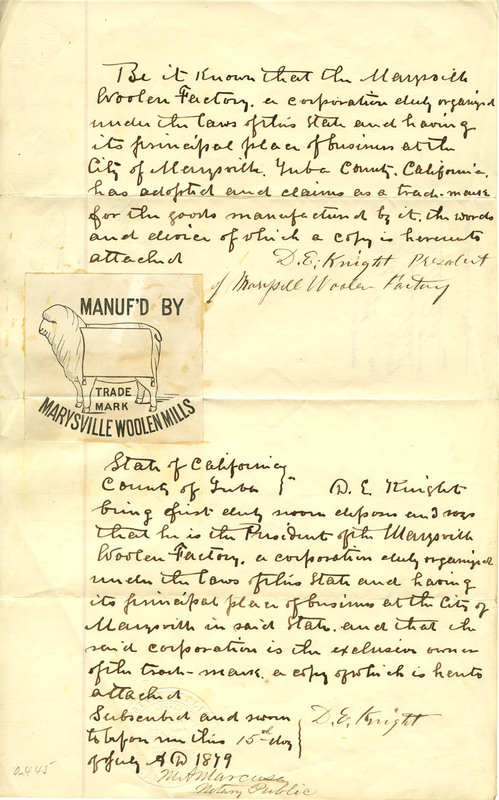 Be it Known that the Marysville
Woolen Factory. a corporation duly organized
under the laws of this State and having
its principal place of business at the
City of Marysville, Yuba County, California,
has adopted and claims as a trade-mark
for the goods manufactured by it, the words
and device of which a copy is hereunto
attached
D. E. Knight President
of Marysville Woolen Factory
MANUF'D BY
TRADE
MARK
MARYSVILLE WOOLEN MILLS
State of California
County of Yuba } D. E. Knight
being first duly sworn deposes and says
that he is the President of the Marysville
Woolen Factory, a corporation duly organized
under the laws of this State and having
its principal place of business at the City of
Marysville in said State. and that the
said corporation is the exclusive owner
of the trade-mark, a copy of which is hereto
attached
Subscribed and sworn
to before me this 15th day
of July A D 1879
D. E. Knight
M. Marcuse
Notary Public